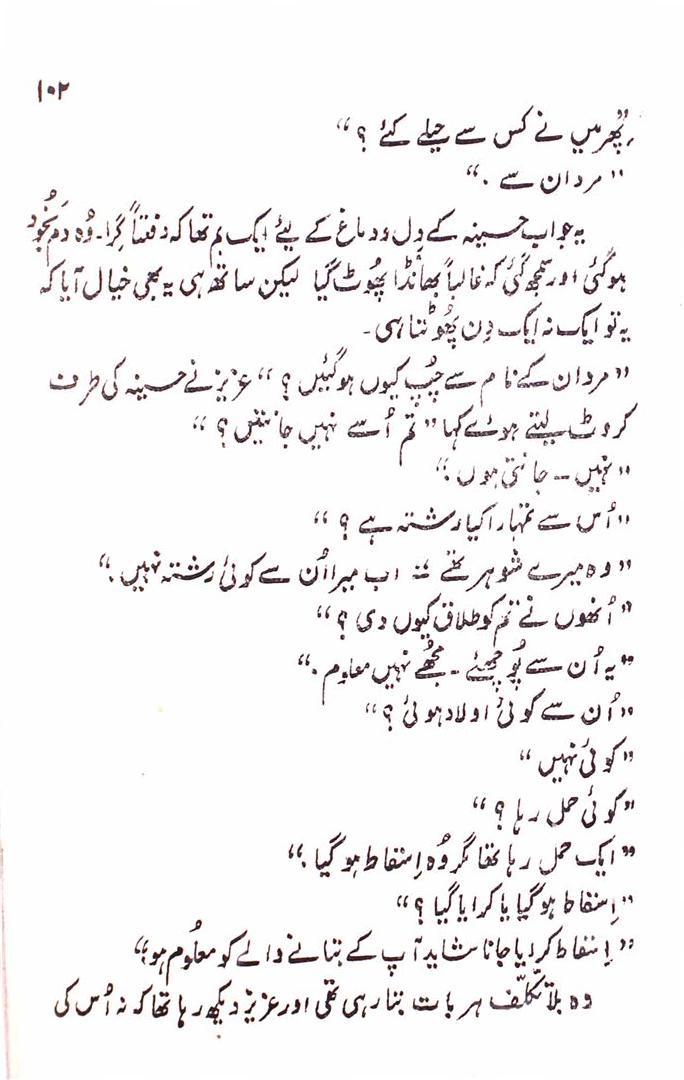 ۱۰۲
"پھر میں نے کس سے حیلے کئے ؟"
"مردان سے ."
یہ جواب حسینہ کے دِل و دماغ کے لیئے ایک بم تھا کہ دفتاً گرا۔ وُہ دَم بخُود
ہو گئی اور سمجھ گئی کہ غالباً بھانڈا پھُوٹ گیا لیکن ساتھ ہی یہ بھی خیال آیا کہ
یہ تو ایک نہ ایک دِن پھُوٹنا ہی۔
"مردان کے نام سے چُپ کیوں ہو گئیں ؟" عزیز نے حسینہ کی طرف
کروٹ لیتے ہوئے کہا "تم اُسے نہیں جانتیں ؟"
"نہیں ۔ جانتی ہوں ."
"اُس سے تمہارا کیا رشتہ ہے ؟"
"وہ میرے شوہر تھے :: اب میرا اُن سے کوئی رشتہ نہیں ."
"اُنھوں نے تم کو طلاق کیوں دی ؟"
"یہ اُن سے پُوچھئے ۔ مجھُے نہیں معلوم ."
"اُن سے کوئی اولاد ہوئی ؟"
"کوئی نہیں"
"کوئی حمل رہا ؟"
"ایک حمل رہا تھا مگر وُہ اِسقاط ہو گیا ."
"اِسقاط ہو گیا یا کرایا گیا ؟"
"اِسقاط کر دیا جانا شاید آپ کے بتانے والے کو معلُوم ہو؛"
وہ بلا تکلّف ہر بات بتا رہی تھی اور عزیز دیکھ رہا تھا کہ نہ اُس کی